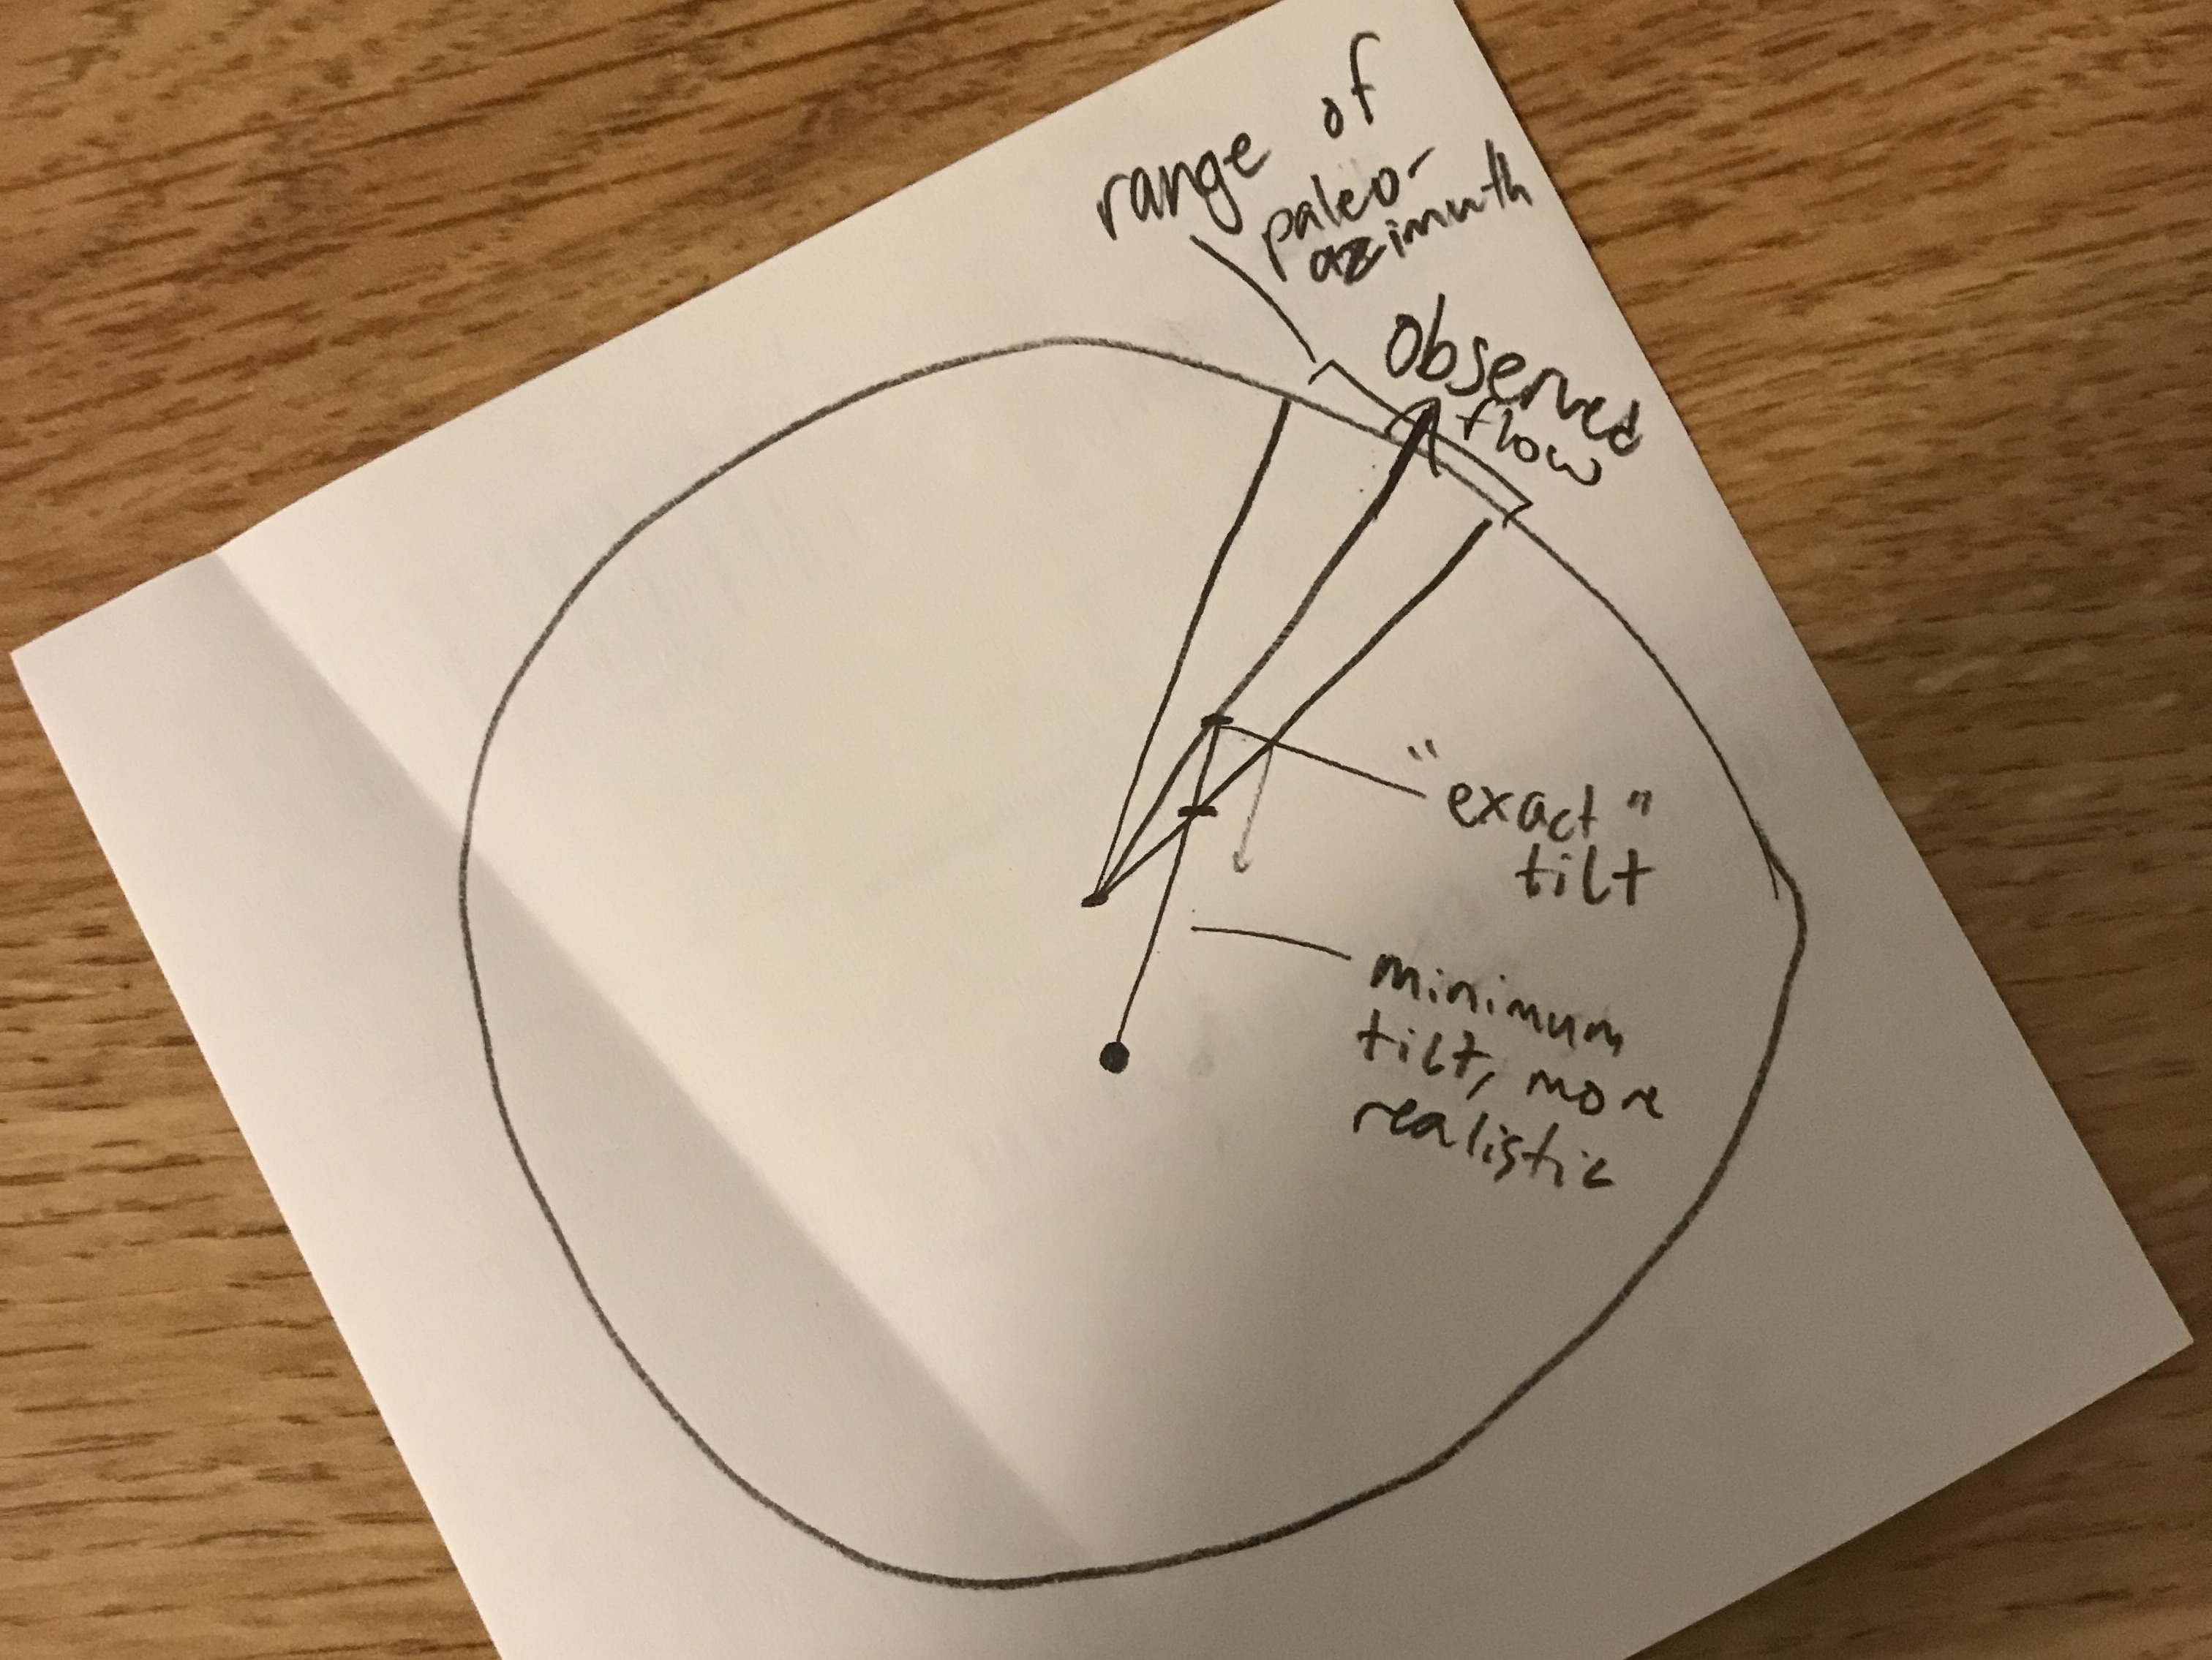 range of
paleo-
azimuth
Observed
flow
"exact"
tilt
minimum
tilt, more
realistic